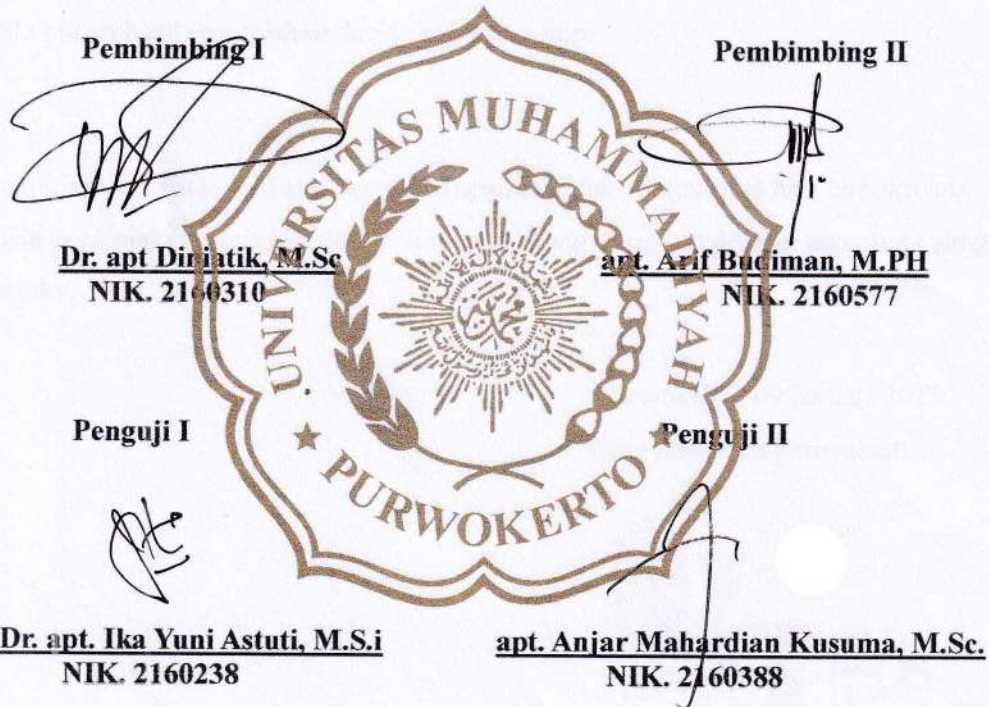 Pembimbing I
Pembimbing II
Dr. apt Diniatik, M.Sc
NIK. 2160310
apt. Arif Budiman, M.PH
NIK. 2160577
UNIVERSITAS MUHAMMADIYAH
PURWOKERTO
Penguji I
Penguji II
Dr. apt. Ika Yuni Astuti, M.S.i
NIK. 2160238
apt. Anjar Mahardian Kusuma, M.Sc.
NIK. 2160388